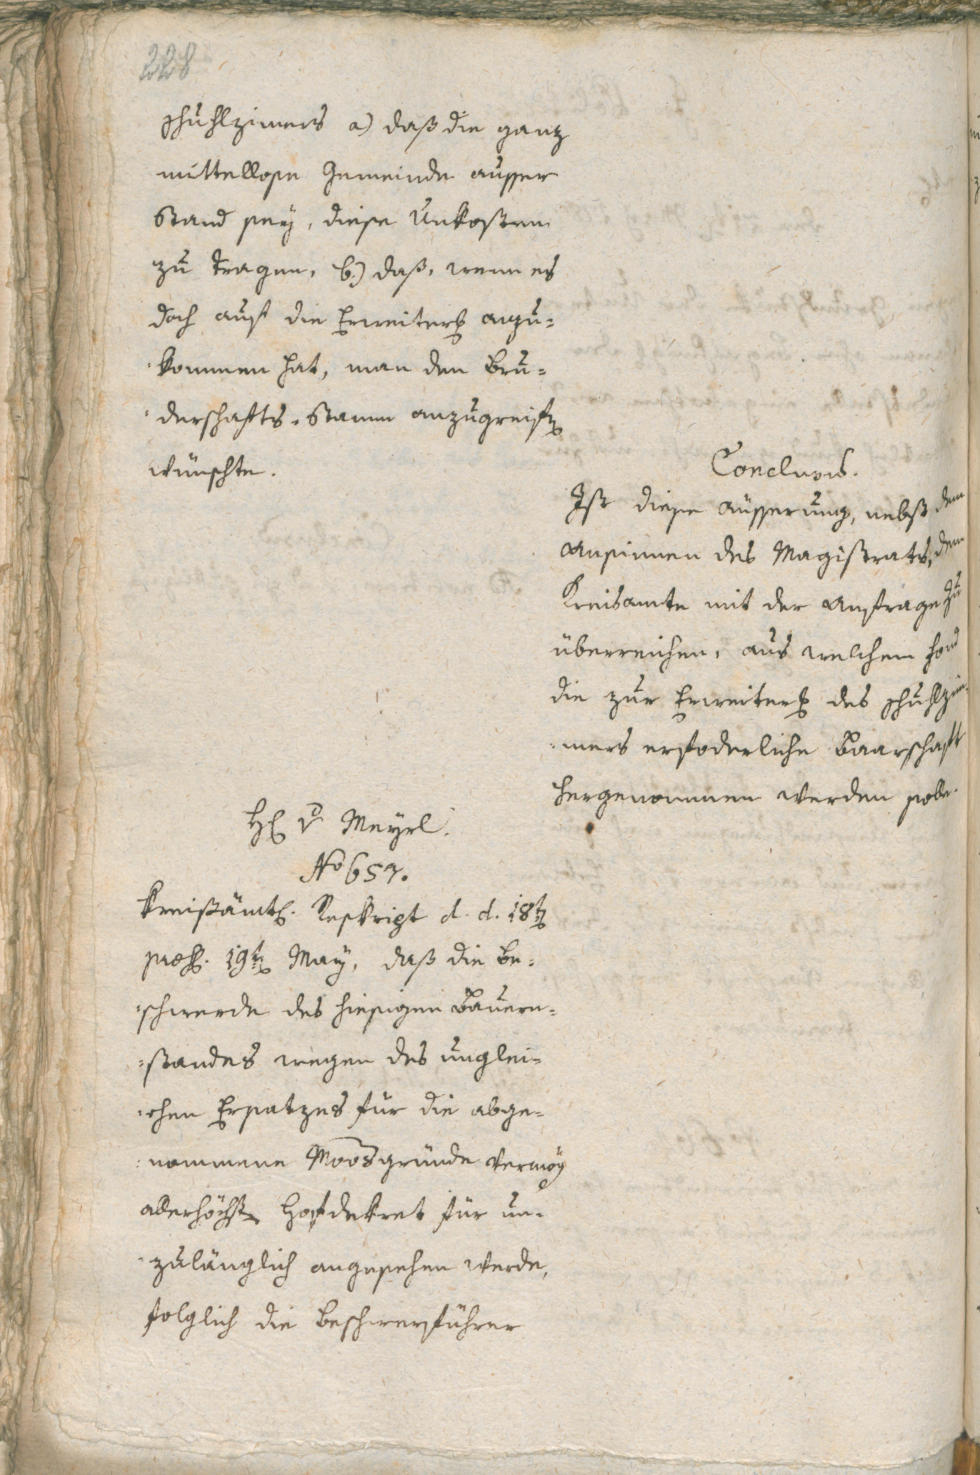 228
schuhlzimers a) daß die ganz
mittellose Gemeinde ausser
Stand sey, diese Unkosten
zu tragen, b.) daß, wenn es
doch auf die Erweiterg anzu=
kommen hat, man den Bru=
derschafts-Stamm anzugreifen
wünschte.
Conclusis.
Ist diese äusserung, nebst dem
Ansinnen des Magistrats, dem
Kreisamte mit der Anfrage zu
überreichen, aus welchem fond
die zur Erweiterg des schuhlzim=
mers erfoderliche Baarschaft
hergenommen werden solle.
H v Meyrl.
No 657.
Kreisämtl. Reskript d. d. 18t
praes. 19t May, daß die Be=
schwerde des hiesigen Bauern=
standes wegen des unglei=
chen Ersatzes für die abge=
nommene Moosgründe vermög
allerhöchst Hofdekret für un=
zulänglich angesehen werde,
folglich die Beschwerführer